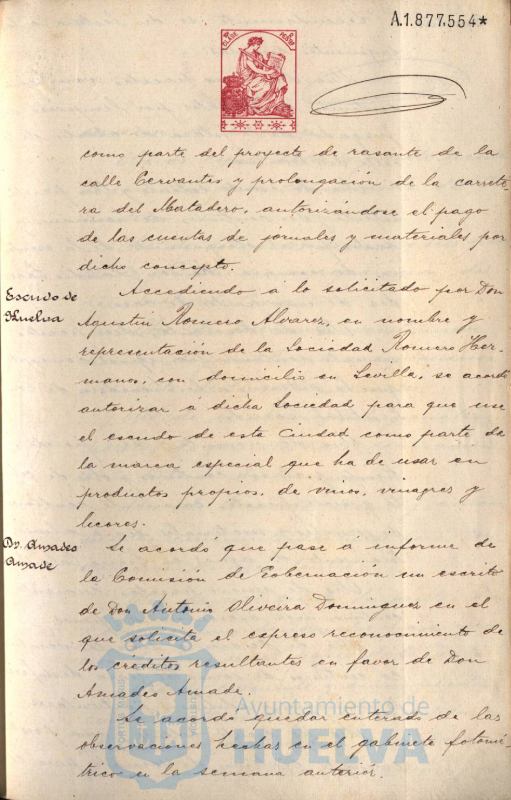 A.1.877,554*
CLASE
como parte del proyecto de rasante de la
calle Cervantes y prolongación de la carrete-
ra del Matadero, autorizándose el pago
de las cuentas de jornales y materiales por
dicho concepto.
Escudo de
Huelva
Accediendo á lo solicitado por Don
Agustin Romero Alvarez, en nombre y
representación de la Sociedad Romero Her-
manos, con domicilio en Sevilla, se acordó
autorizar á dicha Sociedad para que use
el escudo de esta Ciudad como parte de
la marca especial que ha de usar en
productos propios, de vinos, vinagres y
licores.
Dn. Amadeo
Amade
Se acordó que pase á informe de
la Comisión de Gobernación un escrito
de Don Antonio Oliveira Dominguez en el
que solicita el expreso reconocimiento de
los créditos resultantes en favor de Don
Amadeo Amade.
Se acordó quedar enterado de las
observaciones hechas en el gabinete fotomé-
trico en la semana anterior.
Ayuntamiento de
HUELVA